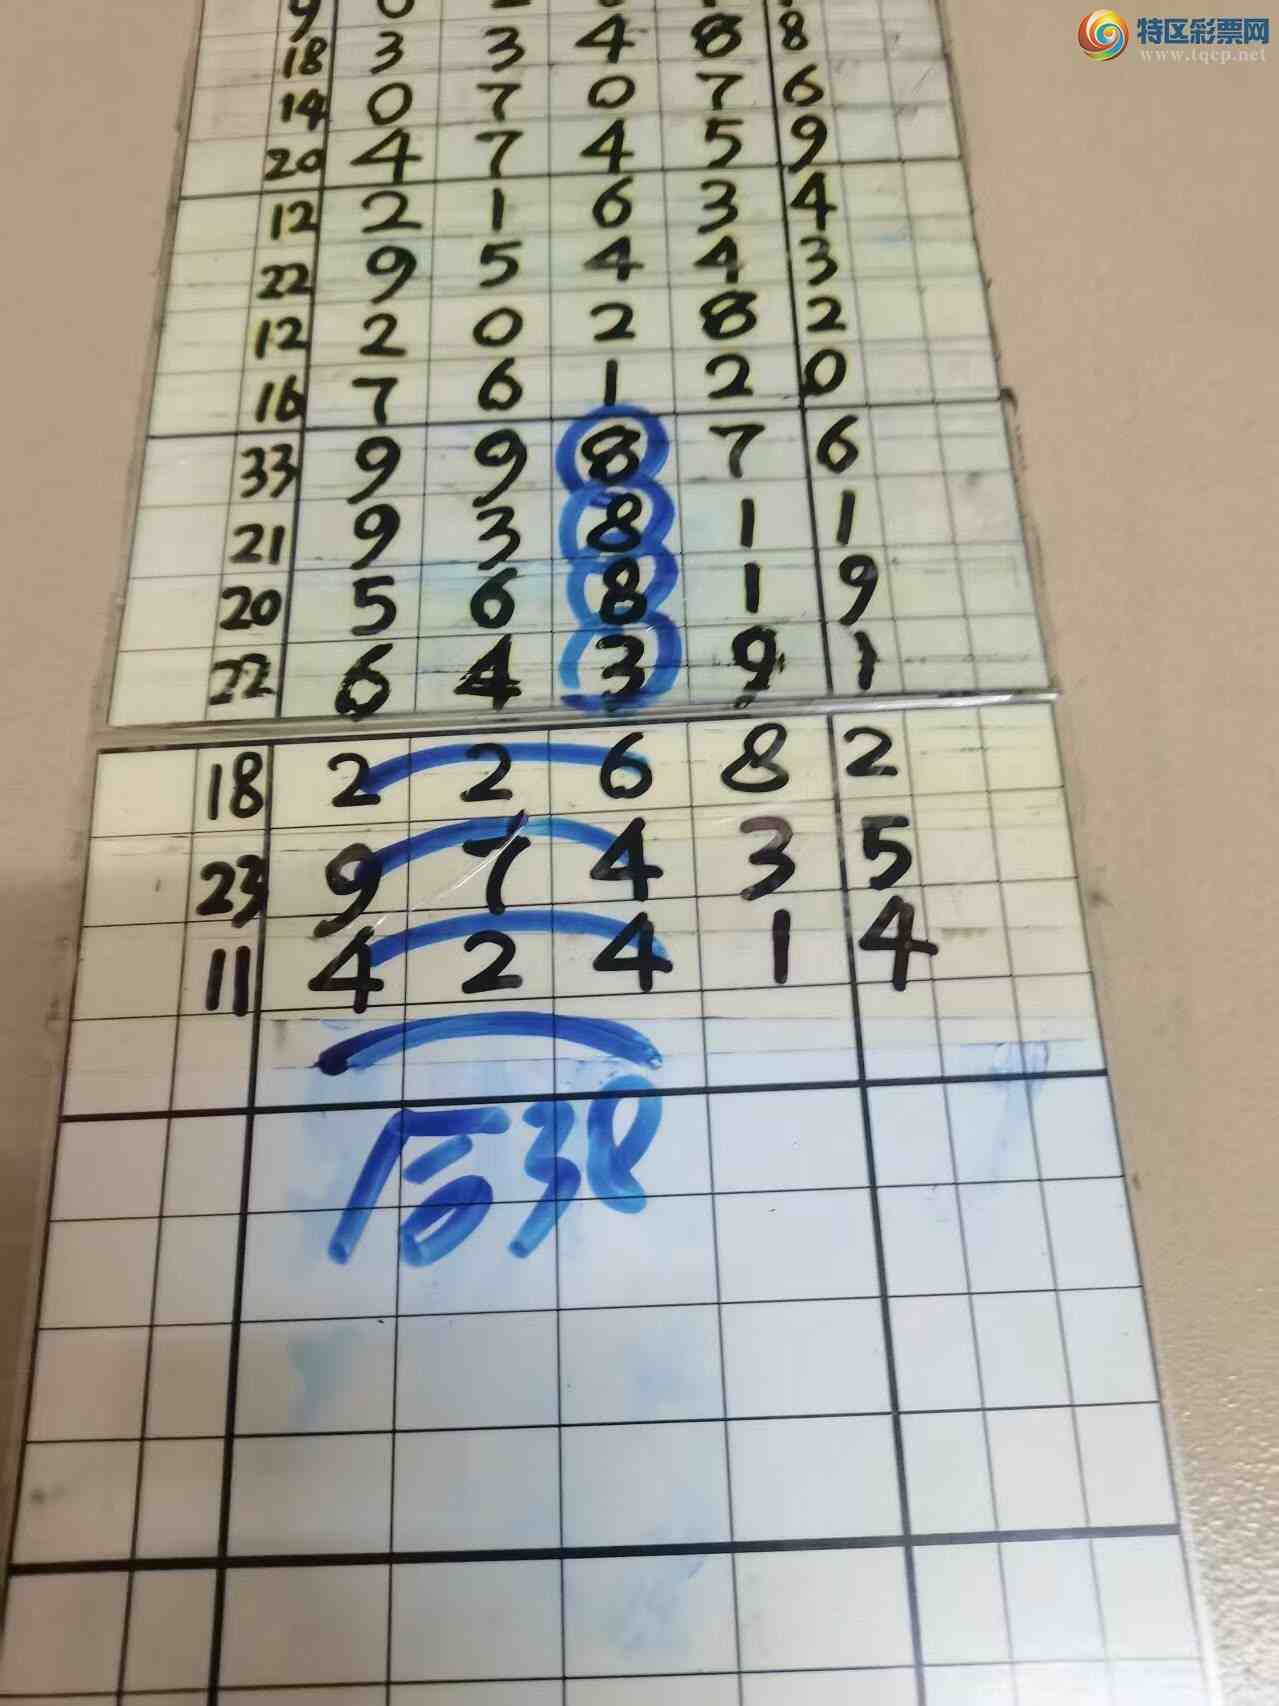 特区彩票网
www.tqcp.net
9 0
18 3 3 4 8 8
14 0 7 0 7 6
20 4 7 4 5 9
12 2 1 6 3 4
22 9 5 4 4 3
12 2 0 2 8 2
16 7 6 1 2 0
33 9 9 8 7 6
21 9 3 8 1 1
20 5 6 8 1 9
22 6 4 3 9 1
18 2 2 6 8 2
23 9 7 4 3 5
11 4 2 4 1 4